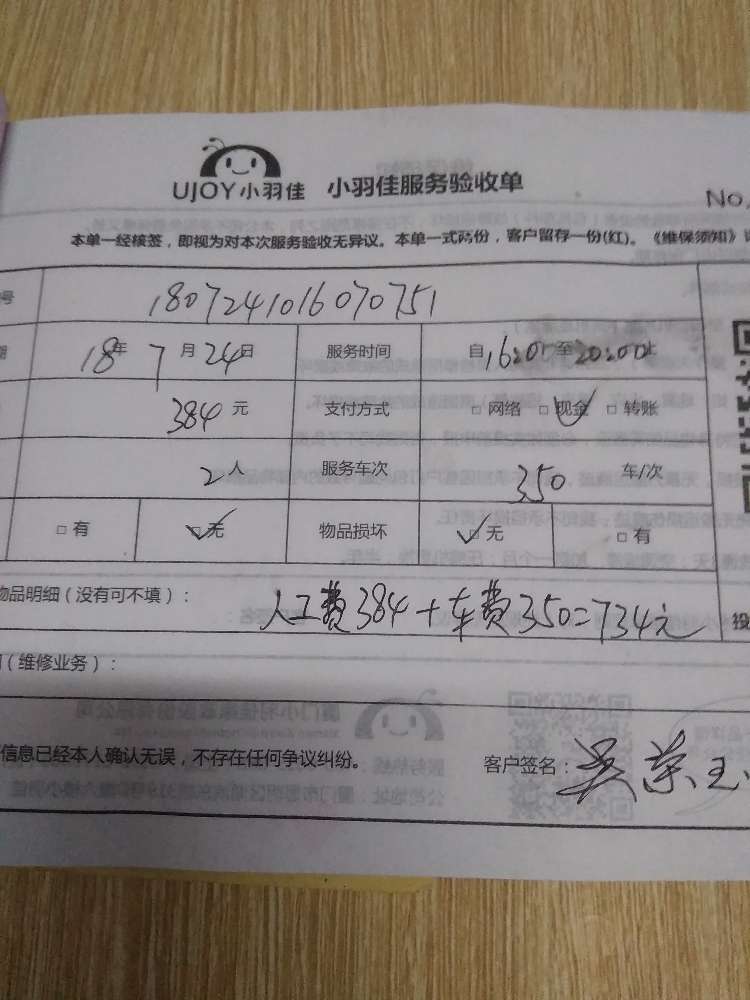 UJOY小羽佳 小羽佳服务验收单
No.
本单一经核签，即视为对本次服务验收无异议。本单一式两份，客户留存一份(红)。《维保须知》
号 1807241016070751
期 18年 7月24日 服务时间 自16:00至20:00止
384元 支付方式 □ 网络 □ 现金 □ 转账
2人 服务车次 350 车/次
□ 有 □ 无 物品损坏 □ 无 □ 有
物品明细（没有可不填）： 人工费384+车费350=734元
投
（维修业务）：
信息已经本人确认无误，不存在任何争议纠纷。 客户签名：